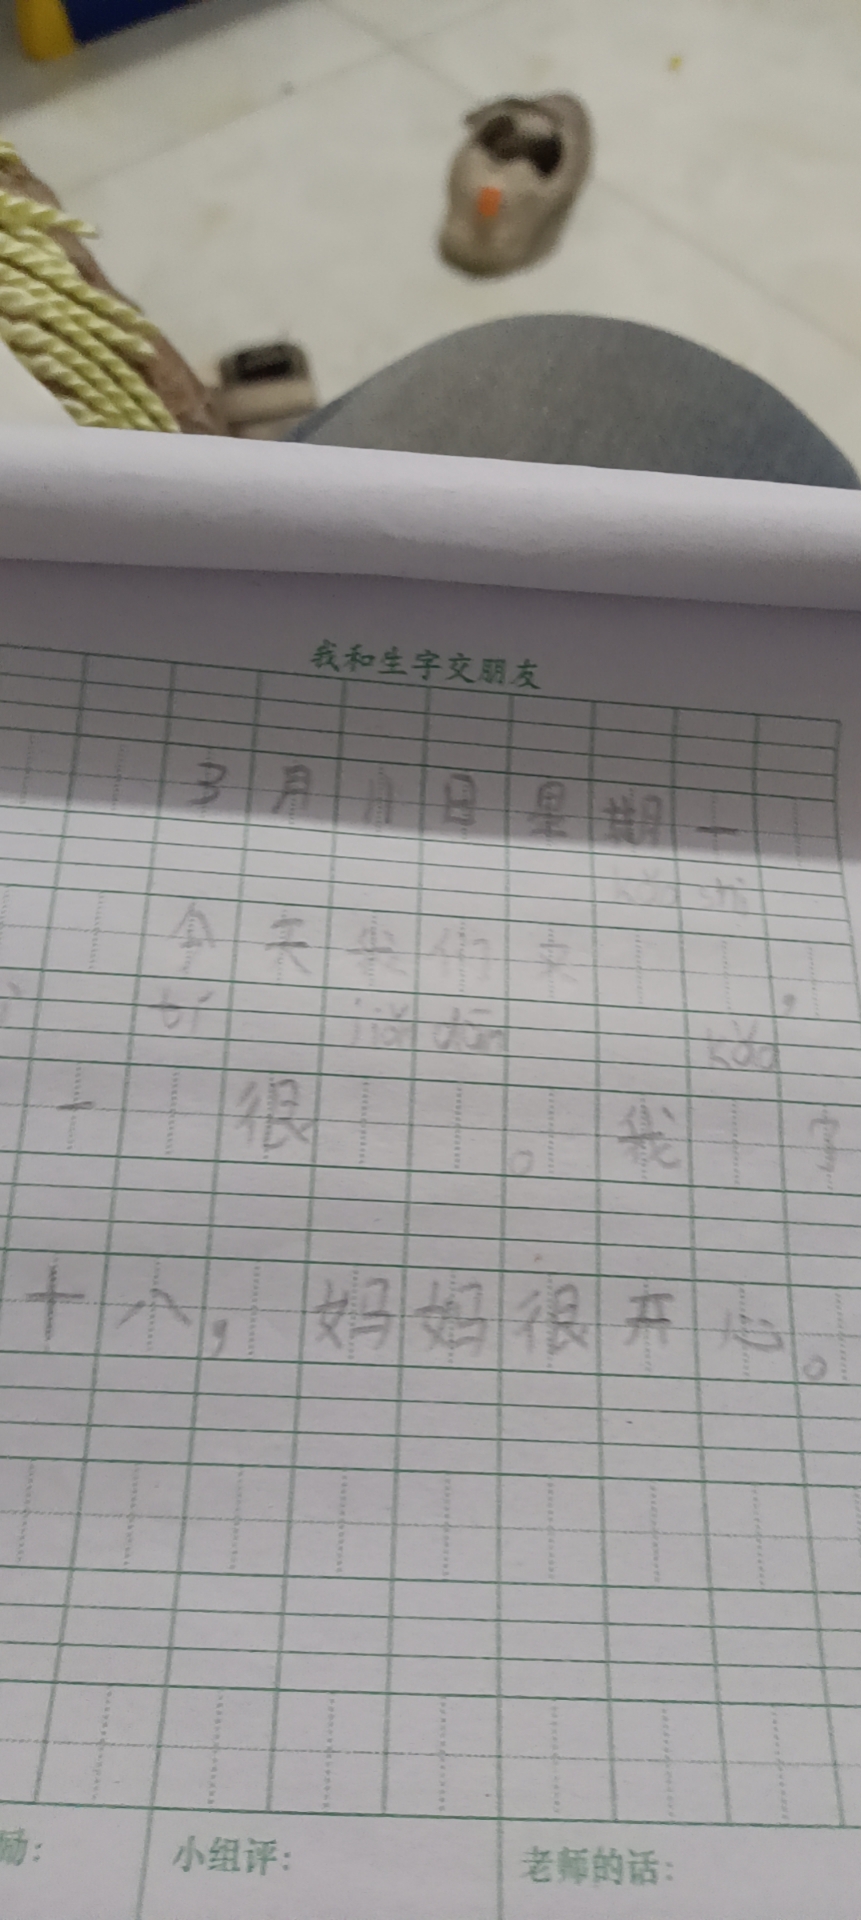 我和生字交朋友
3月11日星期一
kǎo shì
今天我们来，
tí jiǎn dān kǎo
一 很 。我 字
十八，妈妈很开心。
励：
小组评：
老师的话：